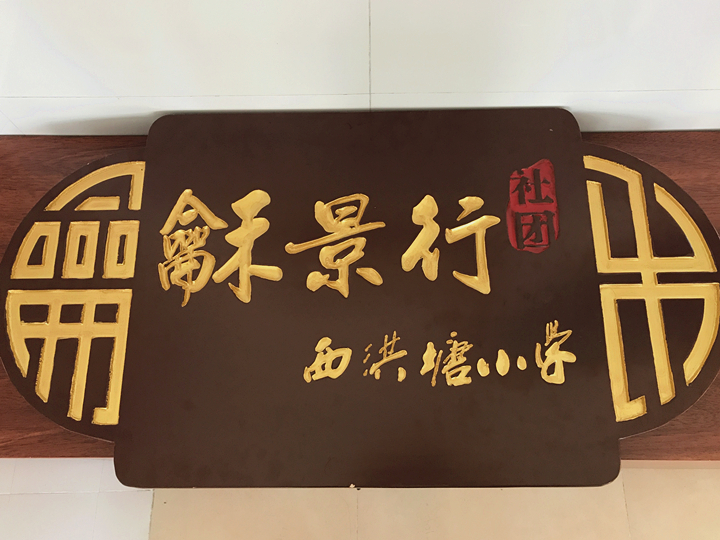 龢景行
社团
西洪塘小学